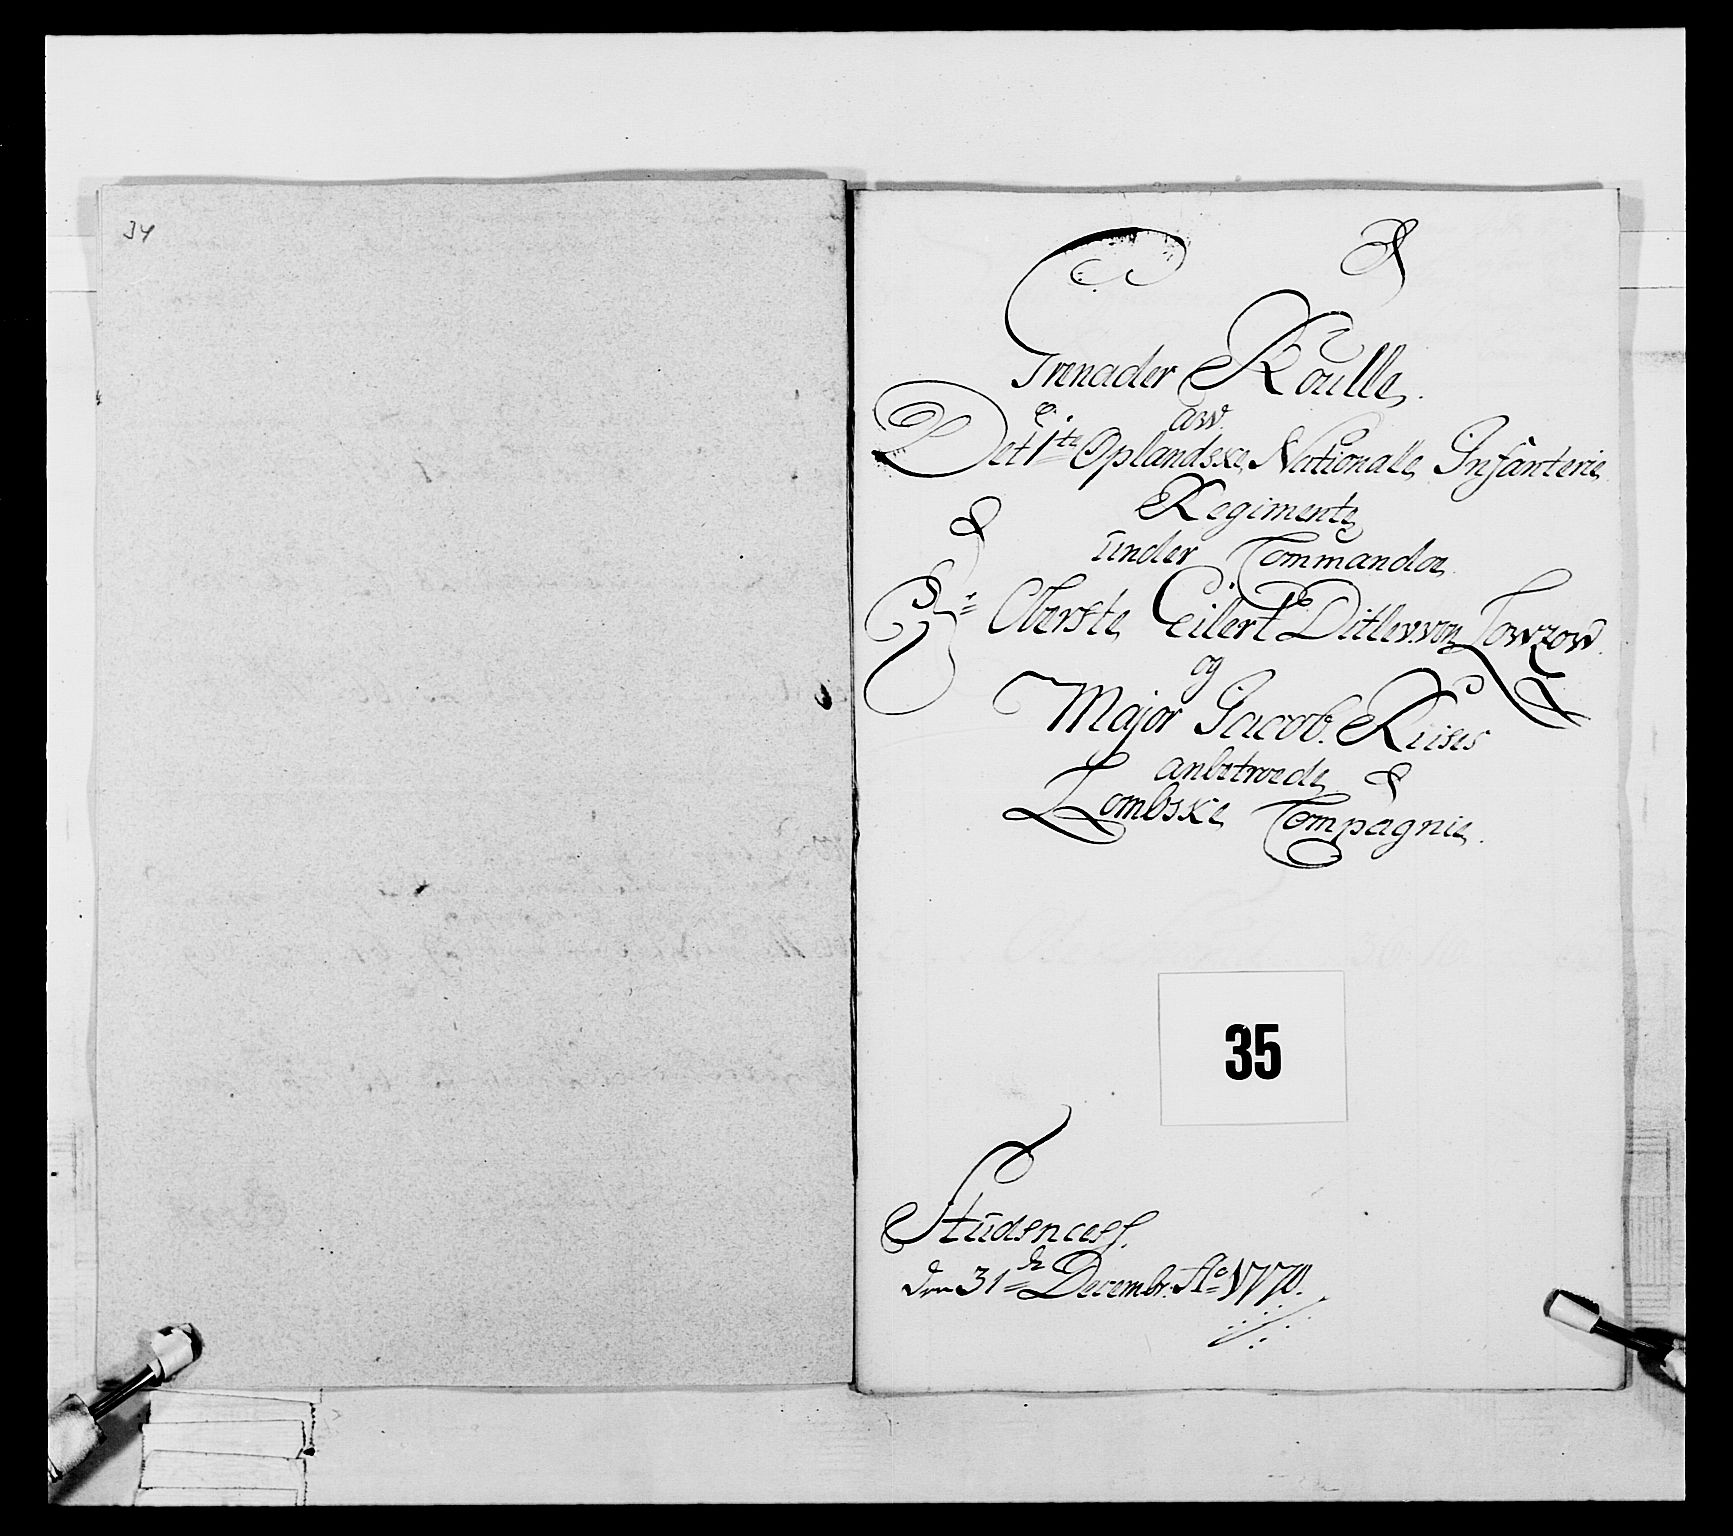 34
Grenader Roulle.
aw.
Det 1te Oplandske Nationalle Infanterie
Regimente
under Commando
Hr= Oberste Eilert Ditlev von Lowzow.
og
Major Jacob. Riises
anbetroede
Lombske Compagnie.
35
den 31= de Decembr: Ao= 1770.